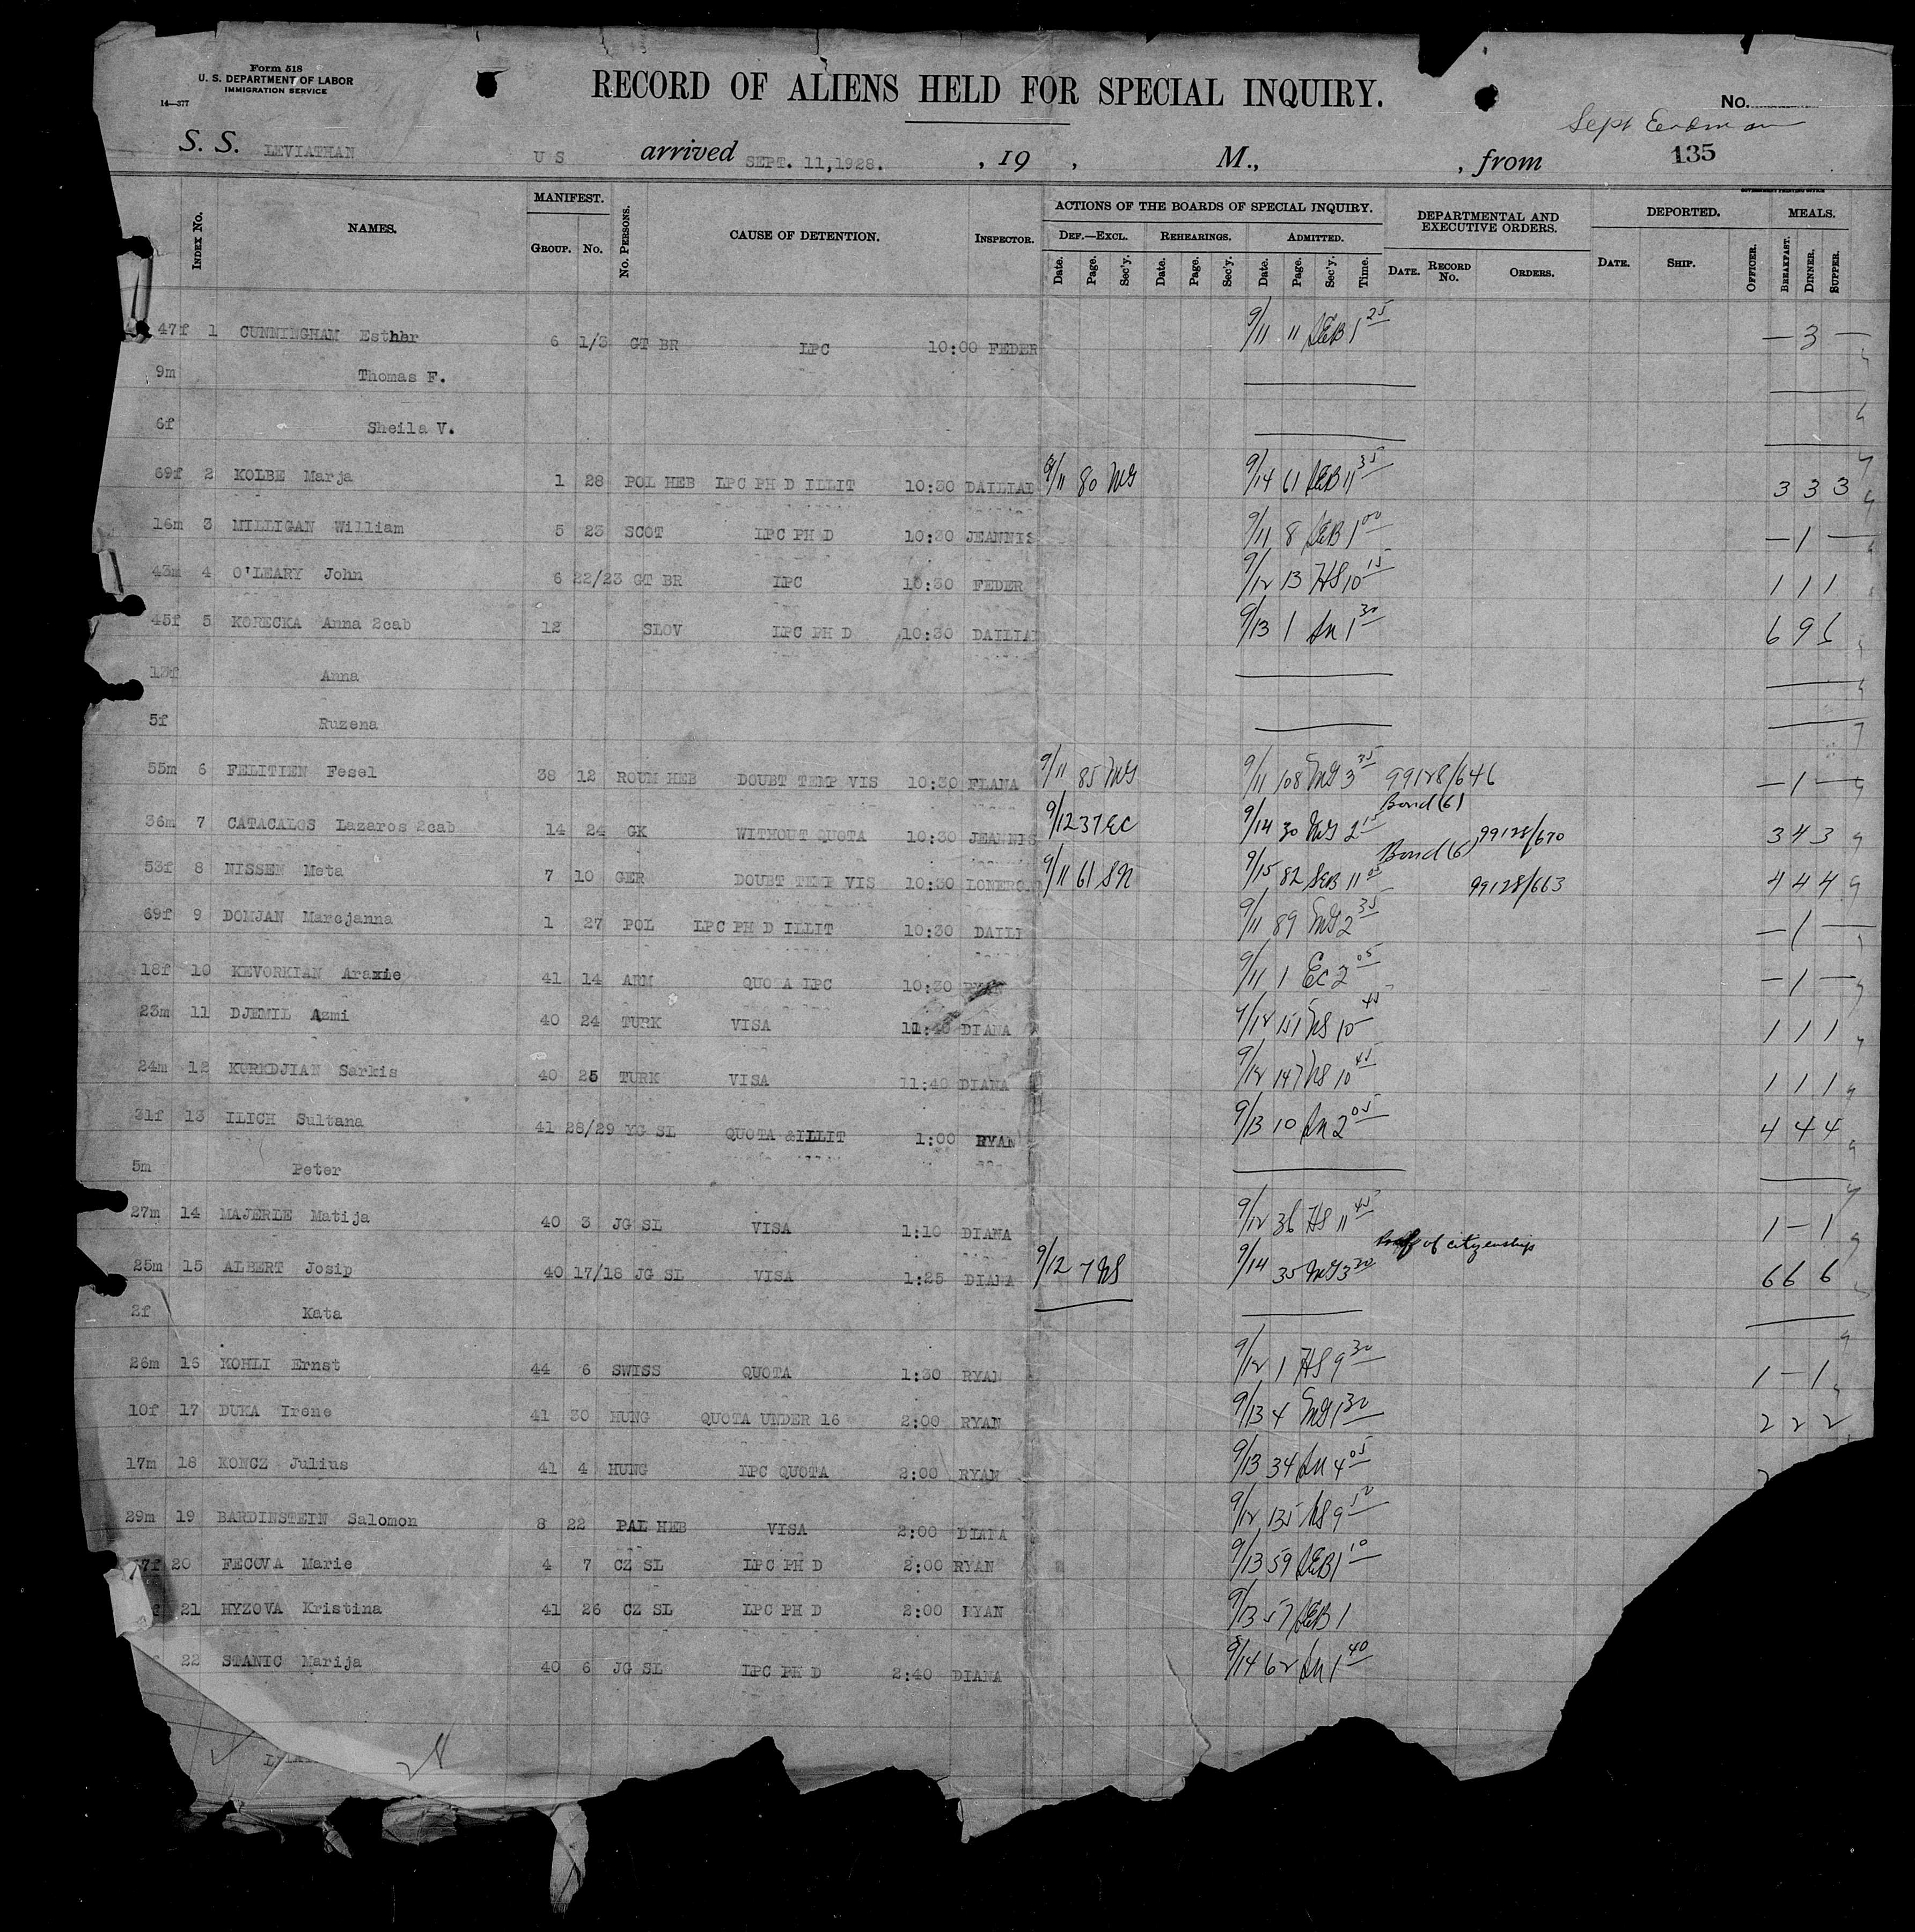 Form 518
U. S. DEPARTMENT OF LABOR
IMMIGRATION SERVICE
14—377
RECORD OF ALIENS HELD FOR SPECIAL INQUIRY.
No.
Sept
S. S. LEVIATHAN US arrived SEPT. 11,1928. , 19 , M., , from 135
GOVERNMENT PRINTING OFFICE
MANIFEST. ACTIONS OF THE BOARDS OF SPECIAL INQUIRY. DEPARTMENTAL AND EXECUTIVE ORDERS. DEPORTED. MEALS.
Index No. NAMES. Group. No. No. Persons. CAUSE OF DETENTION. Inspector. Def.—Excl. Rehearings. Admitted.
Date. Page. Sec'y. Date. Page. Sec'y. Date. Page. Sec'y. Time. Date. Record No. Orders. Date. Ship. Officer. Breakfast. Dinner. Supper.
47f 1 CUNNINGHAM Esther 6 1/3 GT BR LPC 10:00 FEDER 9/11 11 SEB 1 25 — 3 —
9m Thomas F.
6f Sheila V.
69f 2 KOLBE Marja 1 28 POL HEB LPC PH D ILLIT 10:30 DAILIAD 9/11 80 MG 9/14 61 SEB 11 35 3 3 3
16m 3 MILLIGAN William 5 23 SCOT LPC PH D 10:30 JEANNIS 9/11 8 SEB 1 00 — 1 —
43m 4 O'LEARY John 6 22/23 GT BR LPC 10:30 FEDER 9/12 13 HS 10 15 1 1 1
45f 5 KORECKA Anna 2cab 12 SLOV LPC PH D 10:30 DAILIAD 9/13 1 SN 1 30 6 9 6
13f Anna
5f Ruzena
55m 6 FELITIEN Fesel 38 12 ROUM HEB DOUBT TEMP VIS 10:30 FLANA 9/11 85 MG 9/11 108 MG 3 35 99128/646 — 1 —
Bond (6)
36m 7 CATACALOS Lazaros 2cab 14 24 GK WITHOUT QUOTA 10:30 JEANNIS 9/12 37 EC 9/14 30 MG 2 15 99128/670 3 4 3
Bond (6)
53f 8 NISSEN Meta 7 10 GER DOUBT TEMP VIS 10:30 LONERG 9/11 61 SN 9/15 82 SEB 11 05 99128/663 4 4 4
69f 9 DOMJAN Marcjanna 1 27 POL LPC PH D ILLIT 10:30 DAILI 9/11 89 MG 2 35 — 1 —
18f 10 KEVORKIAN Araxie 41 14 ARM QUOTA LPC 10:30 RYAN 9/11 1 EC 2 05 — 1 —
23m 11 DJEMIL Azmi 40 24 TURK VISA 11:40 DIANA 9/12 151 NS 10 45 1 1 1
24m 12 KURKDJIAN Sarkis 40 25 TURK VISA 11:40 DIANA 9/12 147 NS 10 45 1 1 1
31f 13 ILICH Sultana 41 28/29 YG SL QUOTA &ILLIT 1:00 RYAN 9/13 10 SN 2 05 4 4 4
5m Peter
27m 14 MAJERLE Matija 40 3 JG SL VISA 1:10 DIANA 9/12 36 HS 11 45 1 — 1
of citizenship
25m 15 ALBERT Josip 40 17/18 JG SL VISA 1:25 DIANA 9/12 7 NS 9/14 35 MG 3 20 6 6 6
2f Kata
26m 16 KOHLI Ernst 44 6 SWISS QUOTA 1:30 RYAN 9/12 1 HS 9 30 1 — 1
10f 17 DUKA Irene 41 30 HUNG QUOTA UNDER 16 2:00 RYAN 9/13 4 MG 1 30 2 2 2
17m 18 KONCZ Julius 41 4 HUNG LPC QUOTA 2:00 RYAN 9/13 34 SN 4 05
29m 19 BARDINSTEIN Salomon 8 22 PAL HEB VISA 2:00 DIANA 9/12 135 NS 9 50
7f 20 FECOVA Marie 4 7 CZ SL LPC PH D 2:00 RYAN 9/13 59 SEB 1 10
21 HYZOVA Kristina 41 26 CZ SL LPC PH D 2:00 RYAN 9/13 57 SEB 1
f 22 STANIC Marija 40 6 JG SL LPC PH D 2:40 DIANA 9/14 62 SN 1 40